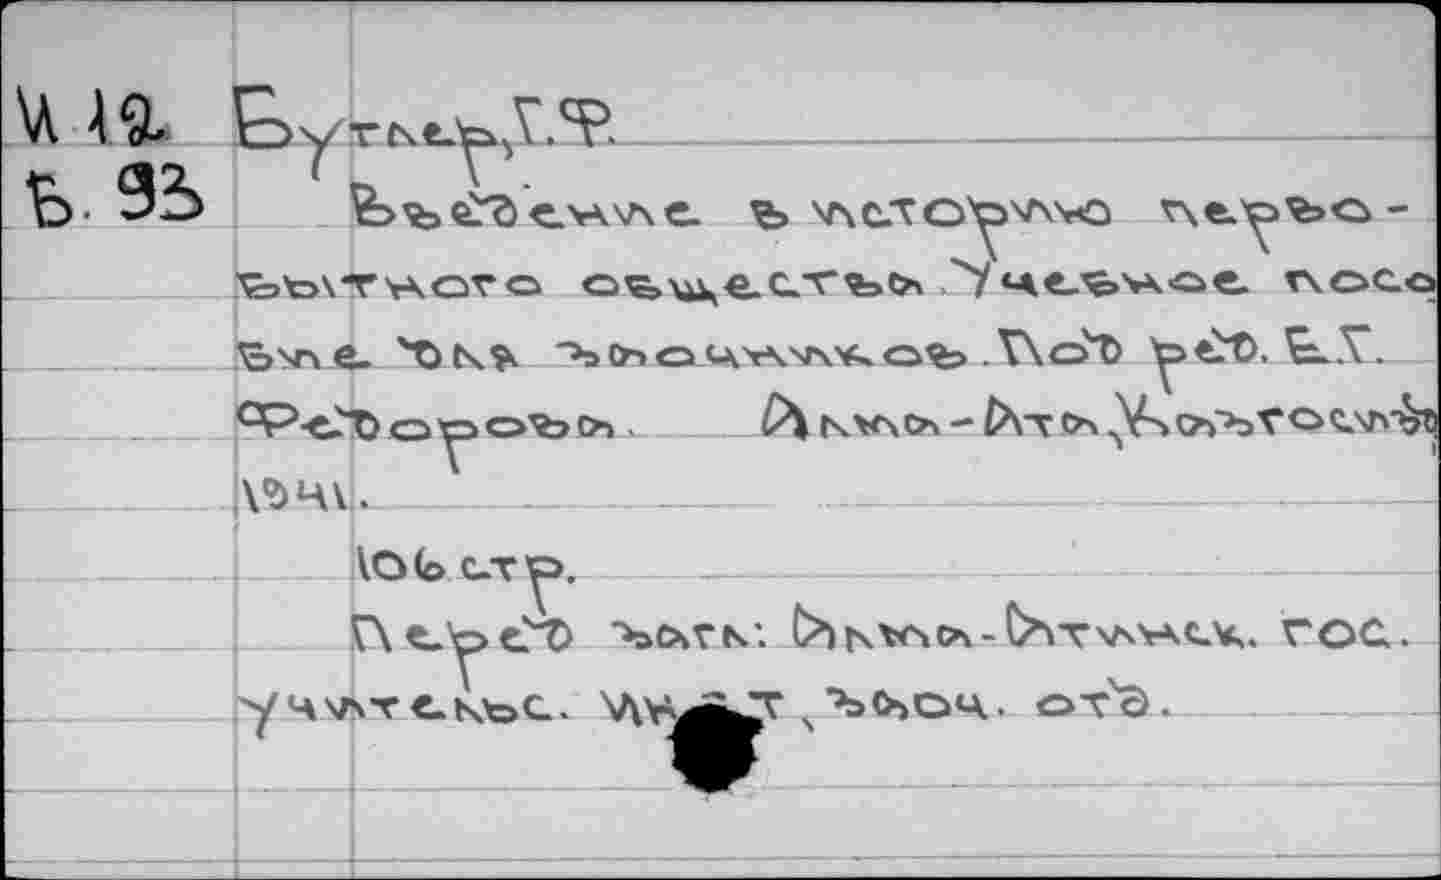 И 12 Бутлер, Г.Ф.
Б. 93 Введение в историю перво-
бытного общества. Учебное посо
бие для заочников. Под ред. Б.Г.
Федорова. Алма-Ата, Казгосиздат
1941.
106 стр.
Перед загл: Алма-Атинск. гос.
учительс. Инст-т, заоч. отд.